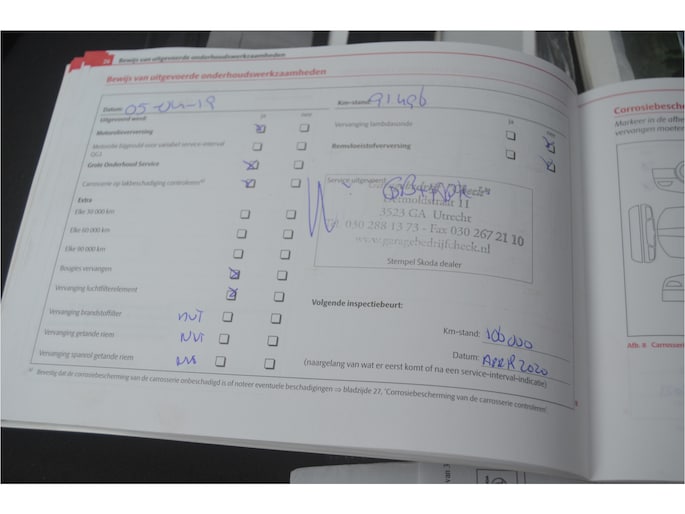 26 Bewijs van uitgevoerde onderhoudswerkzaamheden
Bewijs van uitgevoerde onderhoudswerkzaamheden
Datum: 05 -19
Km-stand:
Uitgevoerd werd: ja nee
Motorolieverversing
Motorolie bijgevuld voor variabel service-interval
QG1
Grote Onderhoud Service
Carrosserie op lakbeschadiging controleren
Extra
Elke 30 000 km
Elke 60 000 km
Elke 90 000 km
Bougies vervangen
Vervanging luchtfilterelement
Vervanging brandstoffilter NVT
Vervanging getande riem NVT
Vervanging spanrol getande riem
ja nee
Vervanging lambdasonde
Remvloeistofverversing
Service uitgevoerd:
11
3523 GA Utrecht
Tel. 030 288 13 73 - Fax 030 267 21 10
www.garagebedrijfcheck.nl
Stempel Škoda dealer
Volgende inspectiebeurt:
Km-stand: 100000
Datum: APRR 2020
(naargelang van wat er eerst komt of na een service-interval-indicatie)
Bevestig dat de corrosiebescherming van de carrosserie onbeschadigd is of noteer eventuele beschadigingen ⇒ bladzijde 27, "Corrosiebescherming van de carrosserie controleren
Corrosiebesch
Markeer in de afbe
vervangen moeten
Afb. 8 Carrosseri
van 3